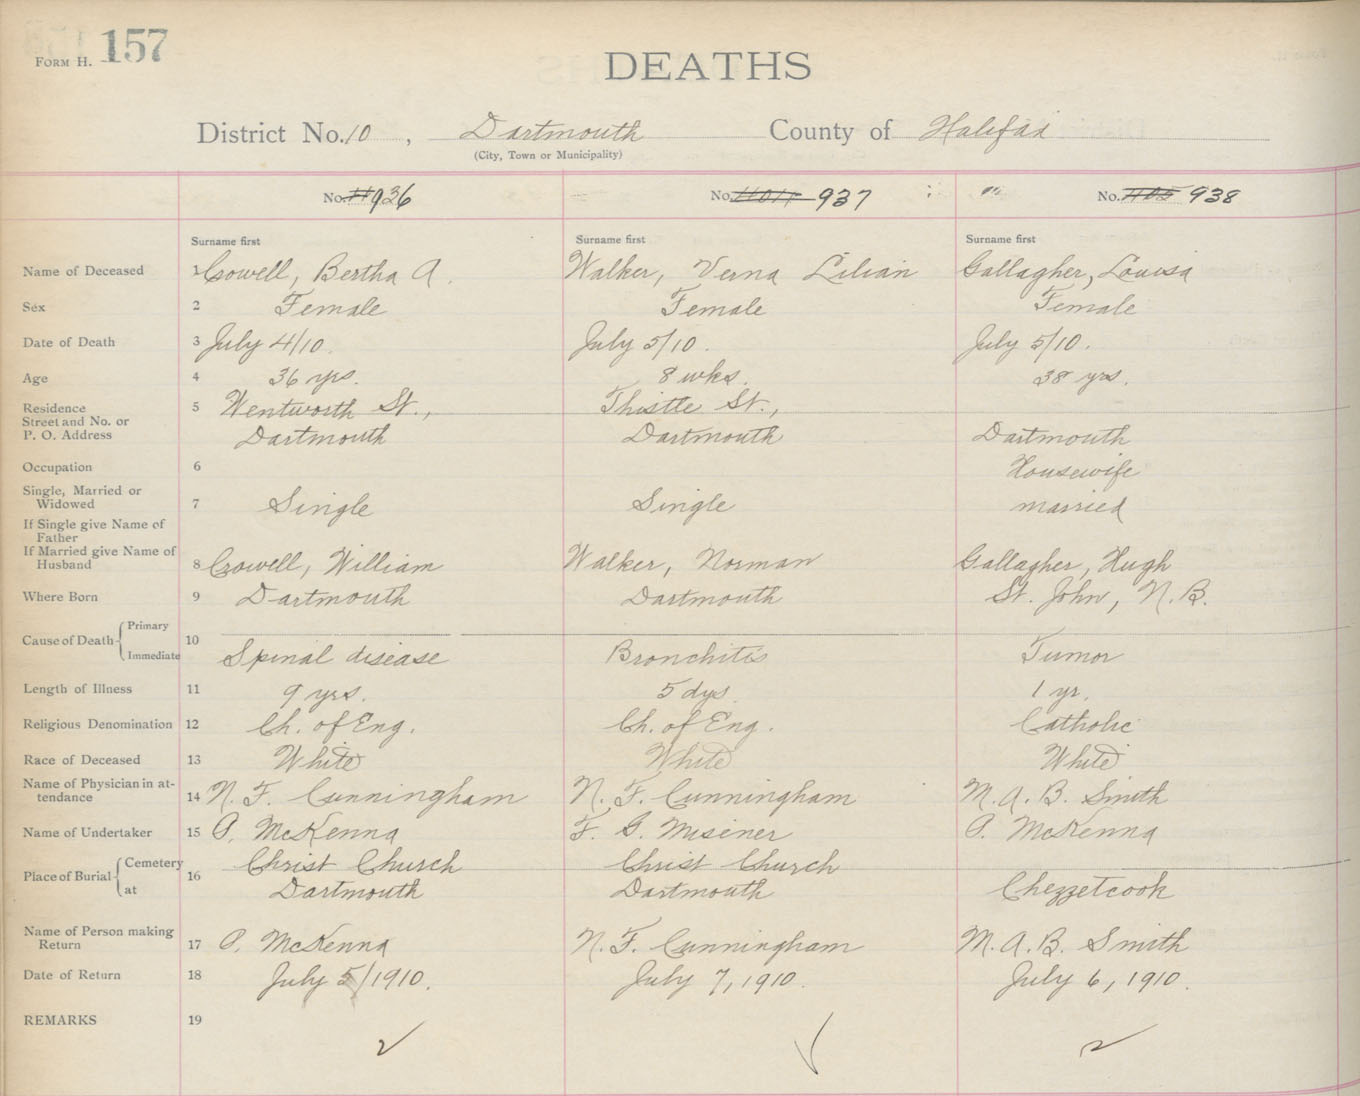 FORM H. 157
DEATHS
District No. 10, Dartmouth County of Halifax
(City, Town or Municipality)
No. 936 No. 937 No. 938
Surname first Surname first Surname first
Name of Deceased 1 Crowell, Bertha A. Walker, Verna Lilian Gallagher, Louisa
Sex 2 Female Female Female
Date of Death 3 July 4/10. July 5/10. July 5/10.
Age 4 36 yrs. 8 wks. 38 yrs.
Residence 5 Wentworth St., Thistle St.,
Street and No. or
P. O. Address Dartmouth Dartmouth Dartmouth
Occupation 6 Housewife
Single, Married or
Widowed 7 Single Single married
If Single give Name of
Father
If Married give Name of
Husband 8 Crowell, William Walker, Norman Gallagher, Hugh
Where Born 9 Dartmouth Dartmouth St. John, N.B.
Primary
Cause of Death 10
Immediate Spinal disease Bronchitis Tumor
Length of Illness 11 9 yrs. 5 dys 1 yr.
Religious Denomination 12 Ch. of Eng. Ch. of Eng. Catholic
Race of Deceased 13 White White White
Name of Physician in at-
tendance 14 N. F. Cunningham N. F. Cunningham M. A. B. Smith
Name of Undertaker 15 P. McKenna F. G. Misener P. McKenna
Cemetery Christ Church Christ Church
Place of Burial 16
at Dartmouth Dartmouth Chezzetcook
Name of Person making
Return 17 P. McKenna N. F. Cunningham M. A. B. Smith
Date of Return 18 July 5/1910. July 7, 1910. July 6, 1910.
REMARKS 19